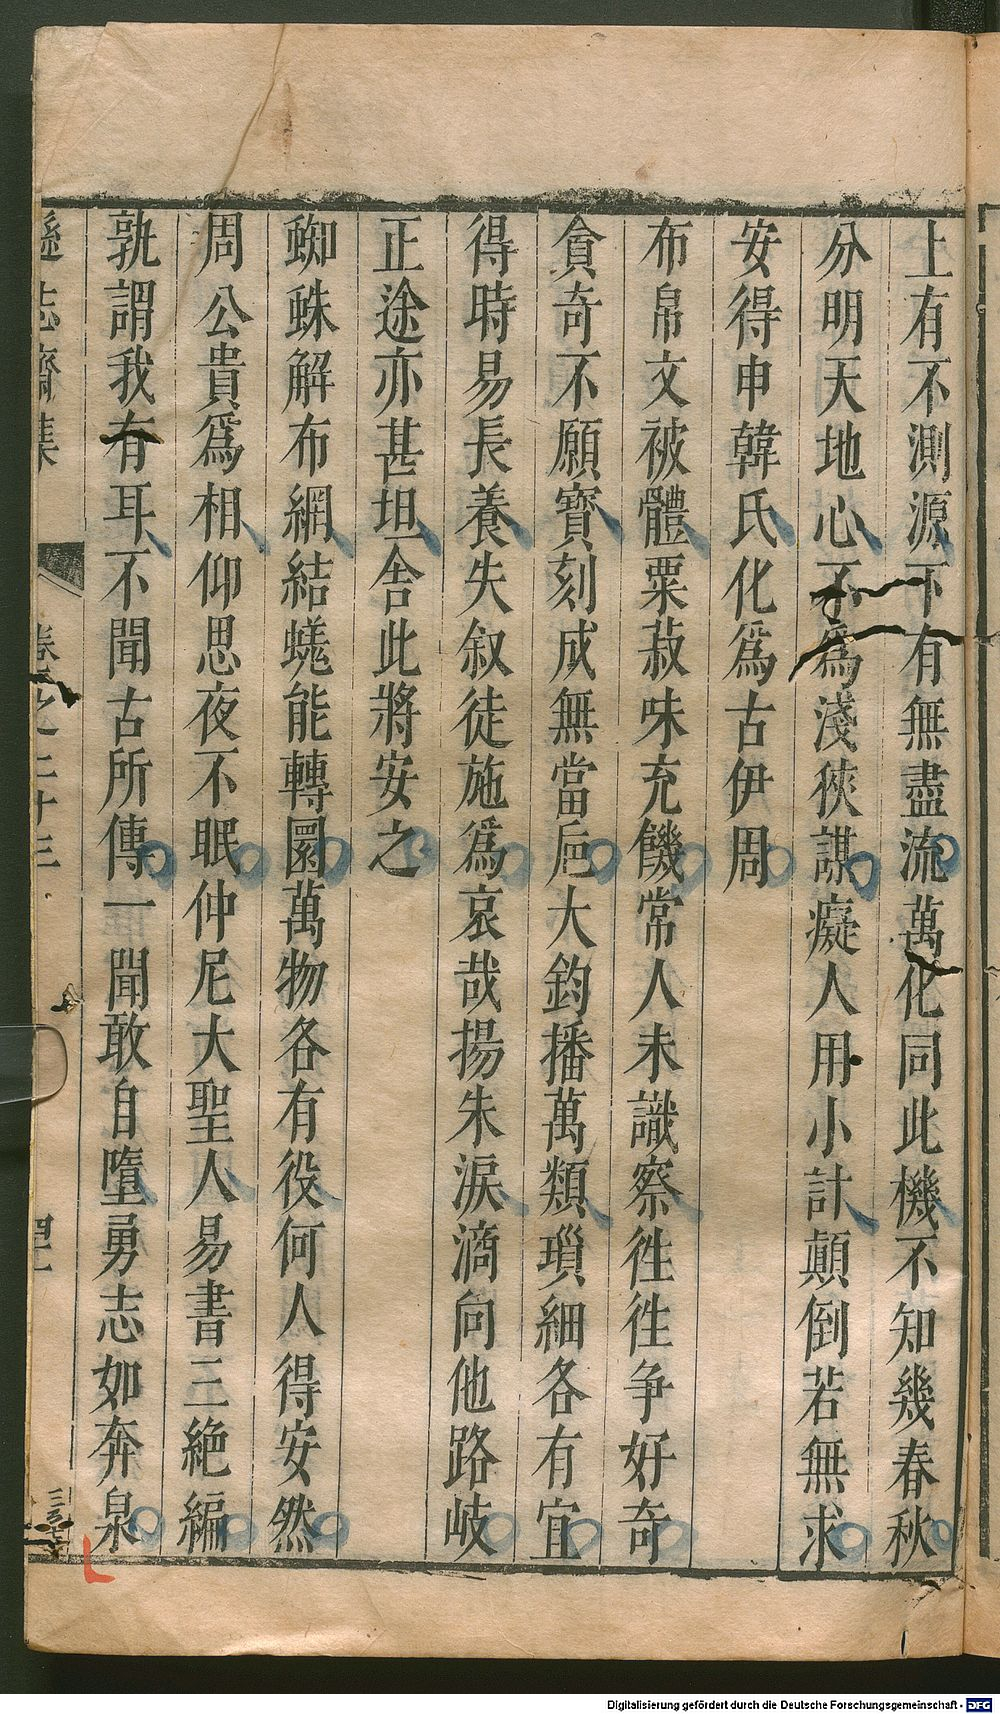 上有不測源下有無盡流萬化同此機不知幾春秋
分明天地心不為淺狹謀癡人用小計顛倒若無求
安得申韓氏化爲古伊周
布帛文被體粟菽味充饑常人未識察徃徃争好奇
貪奇不願寶刻成無當巵大鈞播萬類瑣細各有宜
得時易長養失叙徒施爲哀哉揚朱淚滴向他路岐
正途亦甚坦舎此將安之
蜘蛛解布網結蟯能轉圜萬物各有役何人得安然
周公貴爲相仰思夜不眠仲尼大聖人易書三絶編
孰謂我有耳不聞古所傳一聞敢自墮勇志如奔泉
遜志齋集 卷之二十三
Digitalisierung gefördert durch die Deutsche Forschungsgemeinschaft - DFG